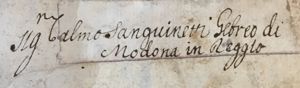 Sig.r Calmo Sanguinetti Hebreo di
Modona in Reggio